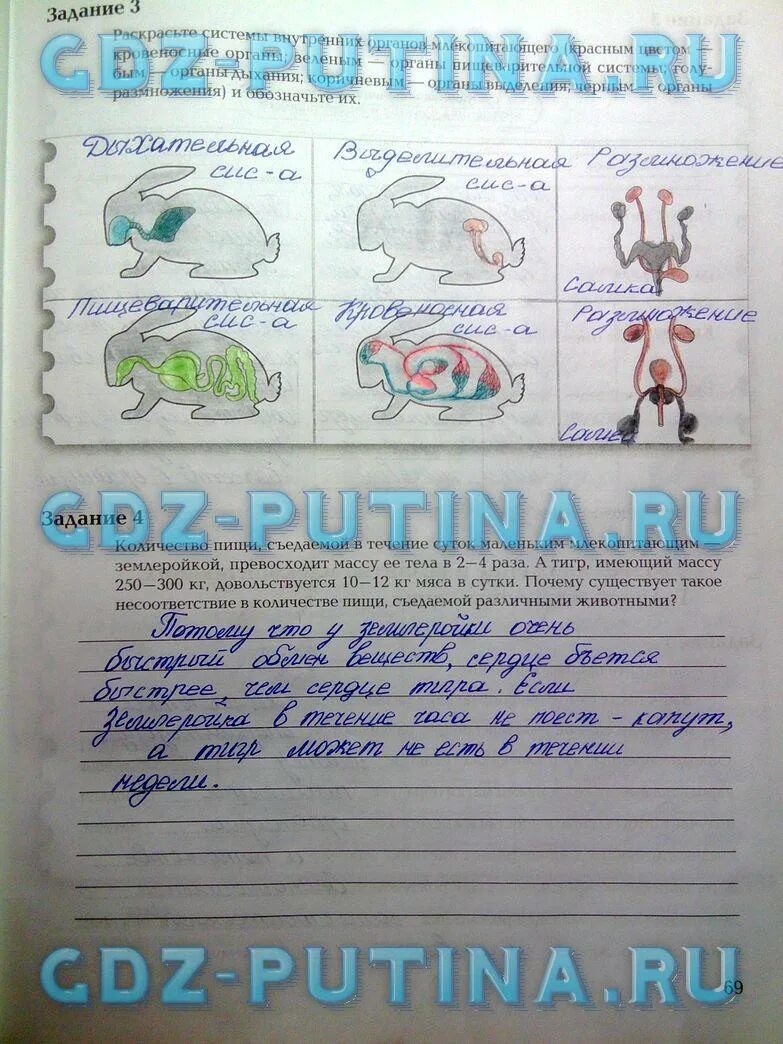 Задание 3
Раскрасьте системы внутренних органов млекопитающего (красным цветом —
кровеносные органы; зеленым — органы пищеварительной системы; голу-
бым — органы дыхания; коричневым — органы выделения; черным — органы
размножения) и обозначьте их.
GDZ-PUTINA.RU
Дыхательная
сис-а
Выделительная
сис-а
Размножение
Самка
Пищеварительная
сис-а
Кровеносная
сис-а
Размножение
Самец
GDZ-PUTINA.RU
Задание 4
Количество пищи, съедаемой в течение суток маленьким млекопитающим —
землеройкой, превосходит массу ее тела в 2—4 раза. А тигр, имеющий массу
250—300 кг, довольствуется 10—12 кг мяса в сутки. Почему существует такое
несоответствие в количестве пищи, съедаемой различными животными?
Потому что у землеройки очень
быстрый обмен веществ, сердце бьется
быстрее, чем сердце тигра. Если
землеройка в течение часа не поест - капут,
а тигр может не есть в течении
недели.
GDZ-PUTINA.RU
69